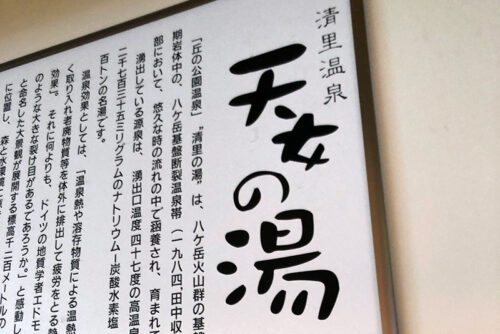 清里温泉
天女の湯
「丘の公園温泉」“清里の湯”は、八ケ岳火山群の基盤
期岩体中の、八ケ岳基盤断裂温泉帯（一九八四、田中収
部において、悠久な時の流れの中で涵養され、育まれ
湧出している源泉は、湧出口温度四十七度の高温
二千七百三十五ミリグラムのナトリウムー炭酸水素塩
百トンの名湯です。
温泉効果としては、「温泉熱や溶存物質による温熱
く取り入れ老廃物質等を体外に排出して疲労をとる熱
効果」。それに何よりも、ドイツの地質学者エドモ
のような大きな裂け目があるであろうか。」と感動し
と命名した大景観が展開する標高千二百メートルの
に位置し、森と水環境に